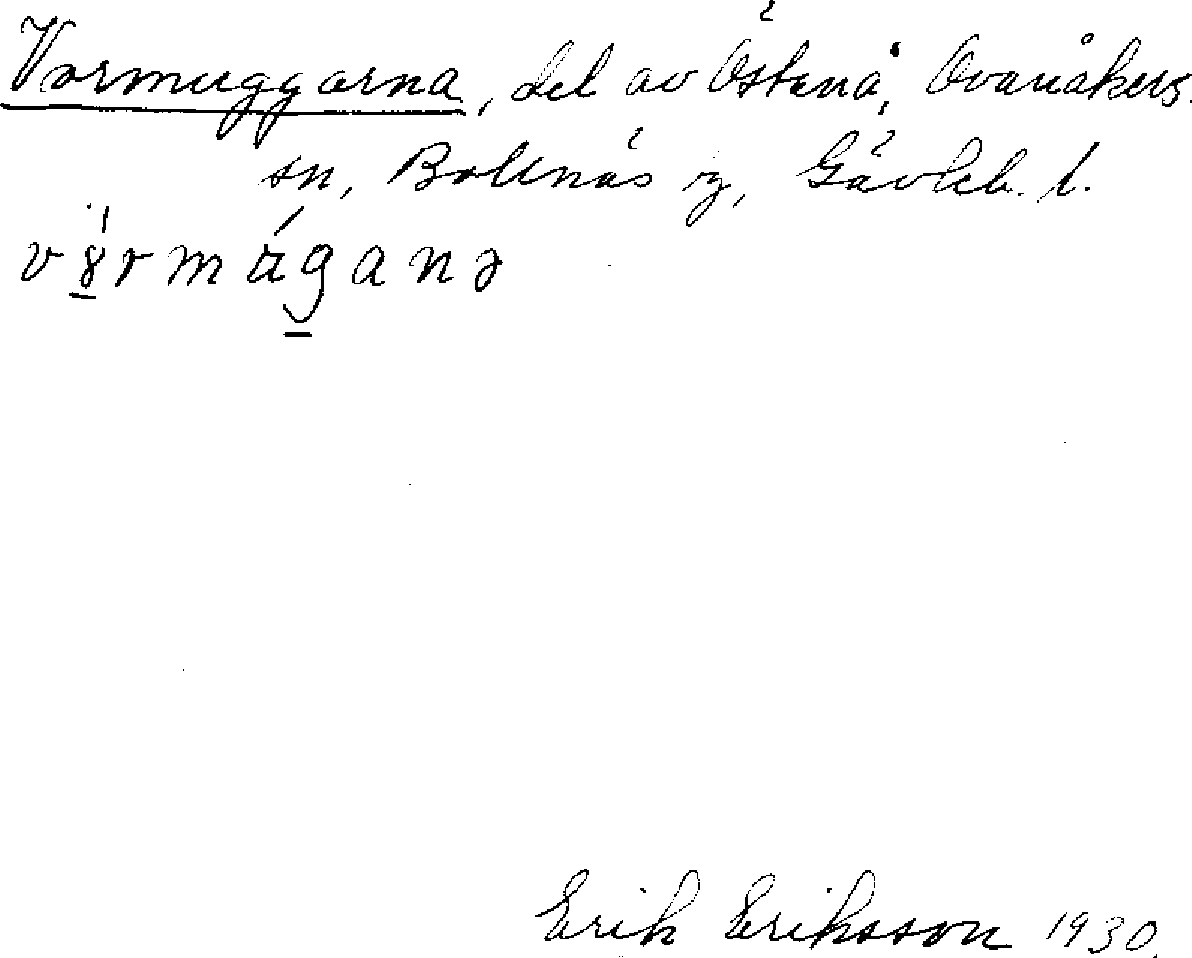 Vormuggarna, del av Östanå, Ovanåkers
sn, Bollnäs rg, Gävleb. l.
Erik Eriksson 1930.